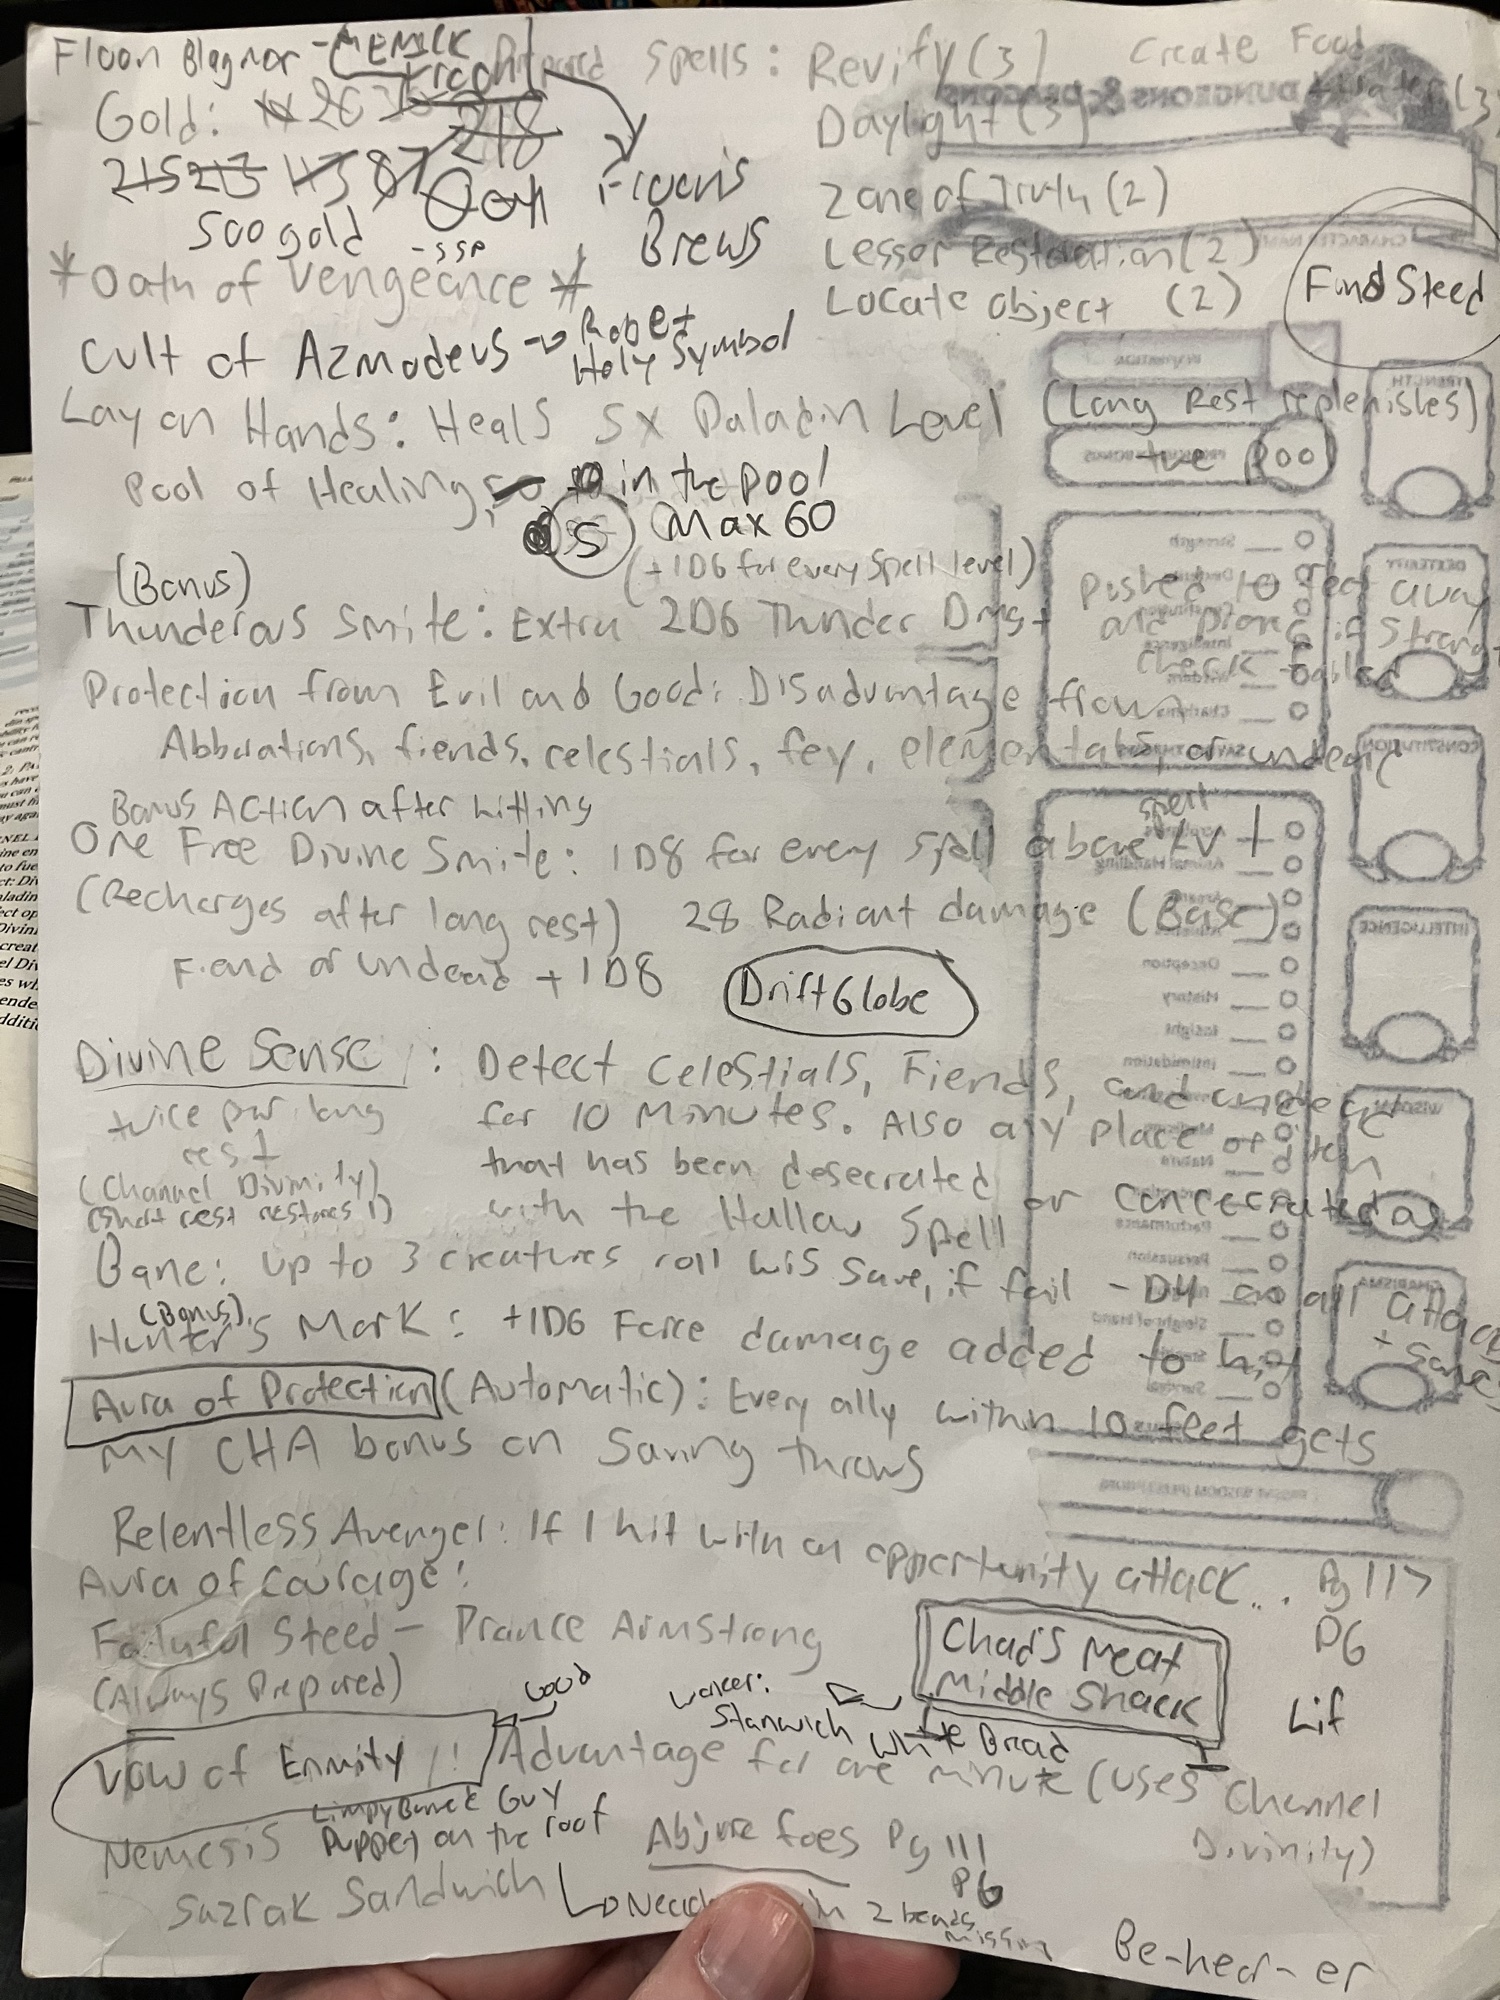 Floon Blagmar -
Prepared Spells: Revify (3)
Create Food
+ water (3)
Gold: 20
218
Daylight (3)
215 213 87
Floon's
Brews
Zone of Truth (2)
500 gold
-5sp
Lessor Restoration (2)
*Oath of Vengeance*
Locate object (2)
Find Steed
Cult of Azmodeus -> Robe +
Holy Symbol
Lay on Hands: Heals 5x Paladin Level (Long Rest replenishes)
the pool
Pool of Healing, in the pool
5 Max 60
(+1D6 for every spell level)
(Bonus)
Thunderous Smite: Extra 2D6 Thunder Dmg + Pushed 10 feet away
and prone if Strength
check failed
Protection from Evil and Good: Disadvantage from
Abberations, fiends, celestials, fey, elementals, or undead
Bonus Action after hitting
One Free Divine Smite: 1D8 for every spell above LV 1
spell
(Recharges after long rest) 28 Radiant damage (Base)
Fiend or undead + 1D8
Drift Globe
Divine Sense: Detect Celestials, Fiends, and undead
twice per long
rest
(Channel Divinity)
(Short rest restores 1)
for 10 Minutes. Also any place or item
that has been desecrated
or concecrated
with the Hallow Spell
Bane: up to 3 creatures roll wis save, if fail -D4 on all attacks
+ saves
(Bonus)
Hunter's Mark: +1D6 Force damage added to hit
Aura of Protection (Automatic): Every ally within 10 feet gets
my CHA bonus on Saving throws
Relentless Avenger: If I hit with an opportunity attack... Pg 117
PG
Aura of Courage:
Faithful Steed - Prance Armstrong
(Always Prepared)
Chad's Meat
Middle Shack
Lif
Good
Stanwich White Bread
Vow of Enmity!! Advantage for one minute (uses Channel
Divinity)
Guy
Nemesis Puppet on the roof
Abjure foes Pg 111
PG
Suzrak Sandwich
2 beads
missing
Be-hed-er